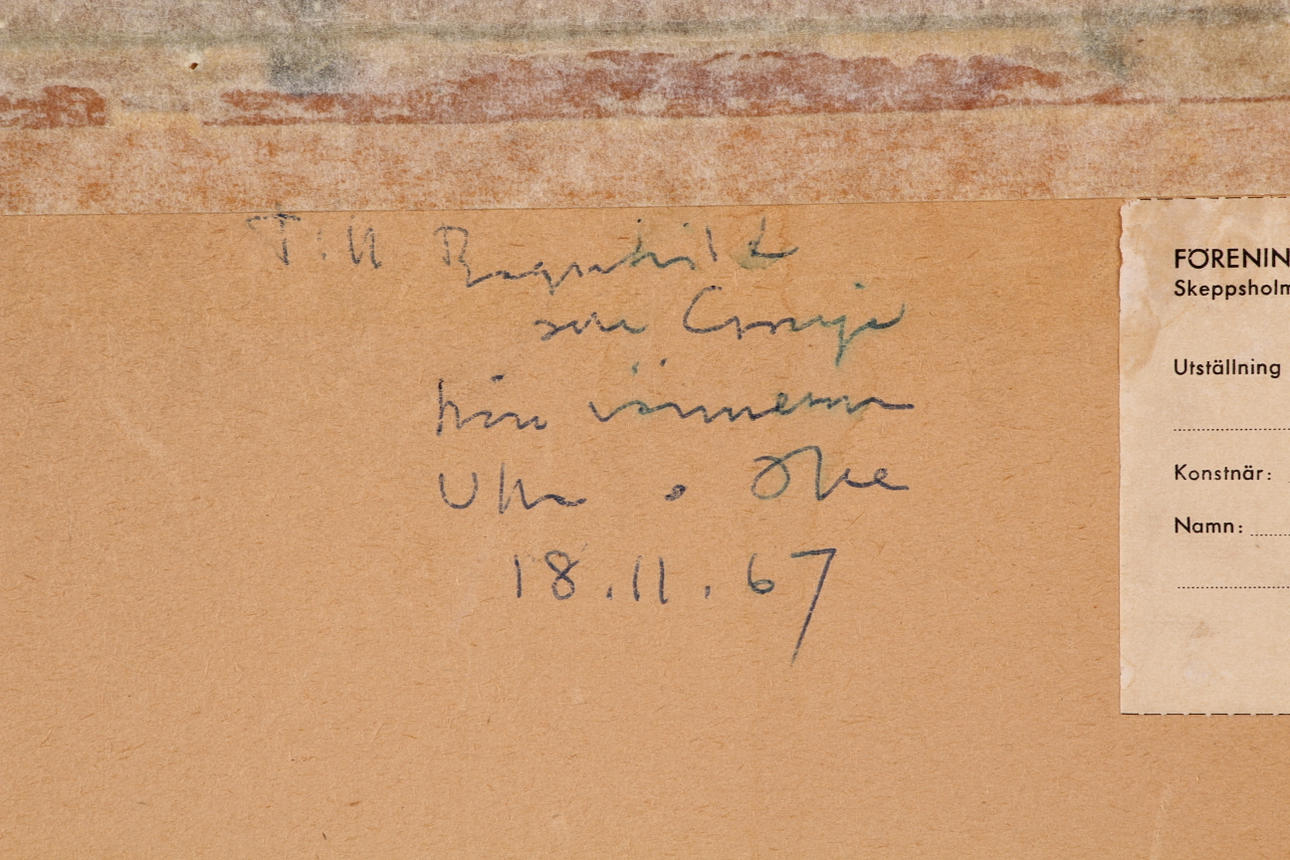 Till Ragnhild
från vännerna
Ulla o Åke
18.11.67
FÖRENIN
Skeppsholm
Utställning
Konstnär:
Namn: